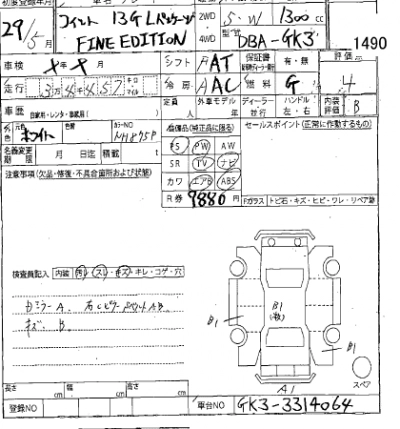 29/5月 フィット 13G Lパッケージ 2WD S・W 1300 cc
FINE EDITION 4WD DBA-GK3 1490
車検 月 シフト FAT 保証書 有・無 評価
走行 冷房 AAC 燃料 G 4
車歴 自家用・レンタ・事業用( ) 定員 外車モデル ディーラー 並行 ハンドル 左・右 内装評価 B
ホワイト カラーNO NH875P 装備品(純正品に限る) セールスポイント(正常に作動するもの)
名義変更期限 月 日迄 積載 t PS PW AW
注意事項(欠品・修復・不具合箇所および状態) SR TV ナビ
カワ エアB ABS
R券 9880 円 Fガラス トビ石・キズ・ヒビ・ワレ・リペア跡
検査員記入 内装 キレ・コゲ・穴
B1
B1
キズ B
B1
A1
スペア
長さ cm 幅 cm 高さ cm
登録NO 車台NO GK3-3314064